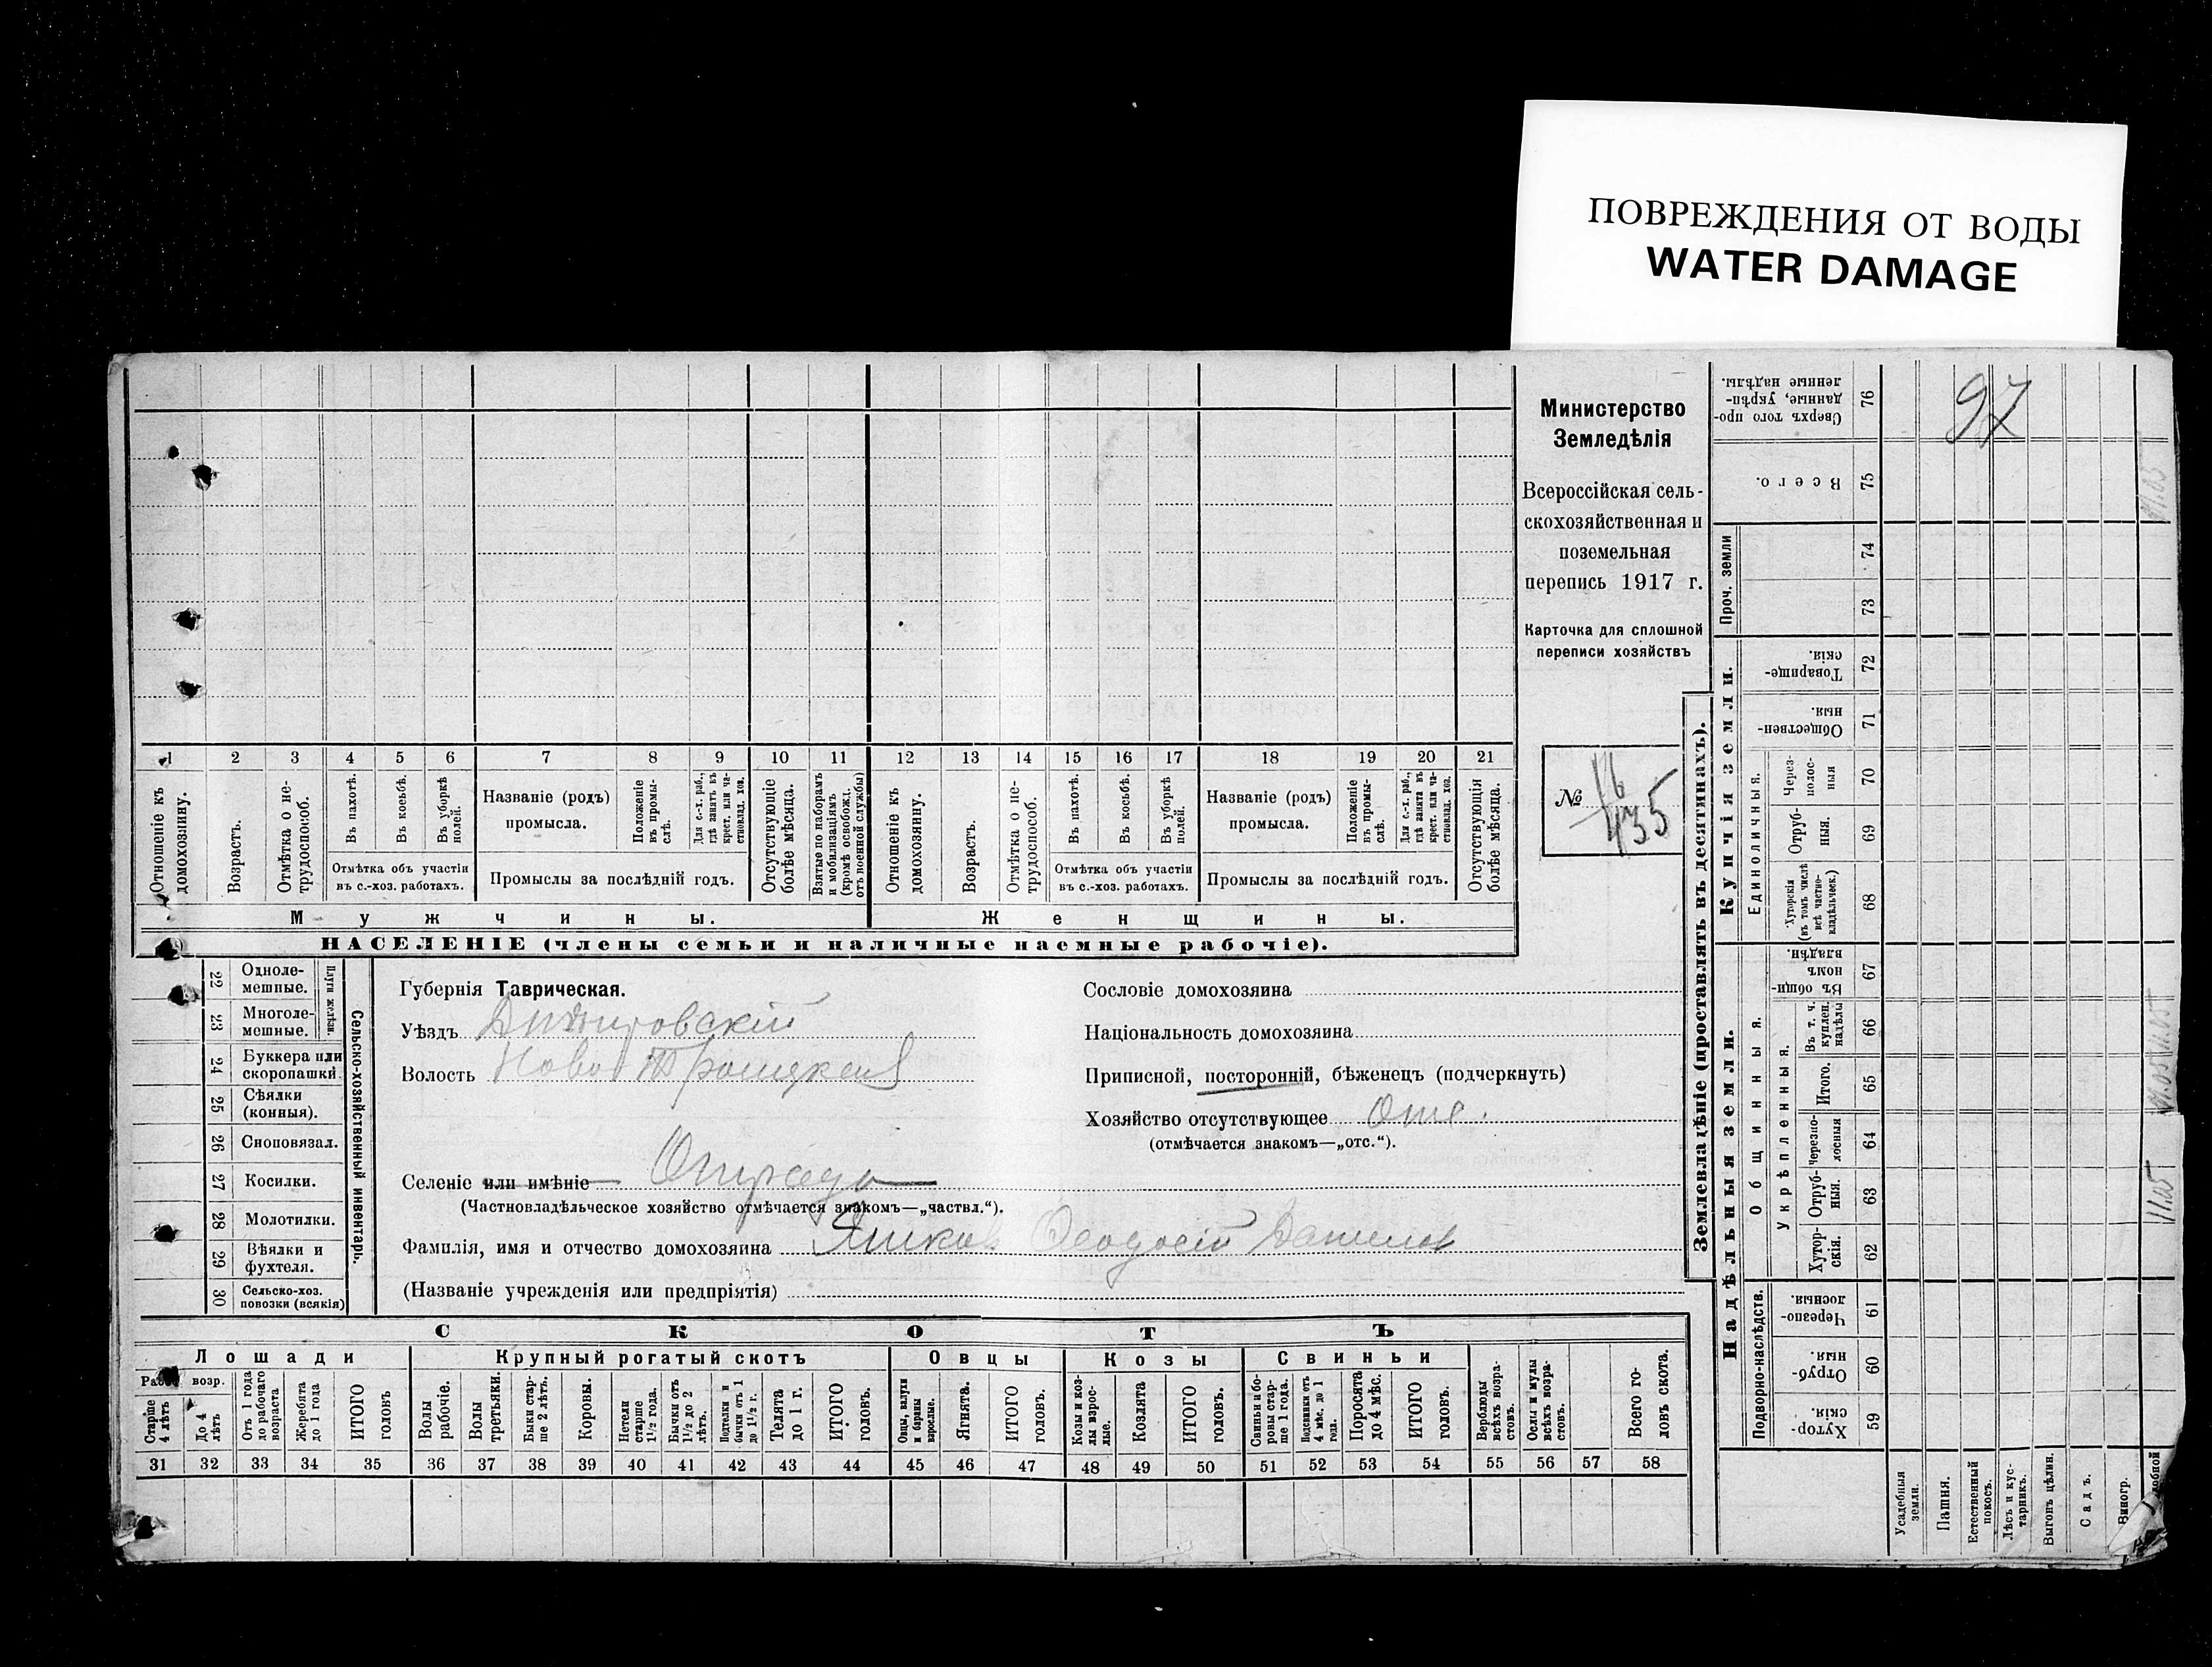 ПОВРЕЖДЕНИЯ ОТ ВОДЫ
WATER DAMAGE
97
Министерство
Земледѣлія
Всероссійская сель-
скохозяйственная и
поземельная
перепись 1917 г.
Карточка для сплошной
переписи хозяйствъ
№ 16
435
1 2 3 4 5 6 7 8 9 10 11 12 13 14 15 16 17 18 19 20 21
Отношеніе къ домохозяину.
Возрастъ.
Отмѣтка о не-трудоспособ.
Въ пахотѣ.
Въ косьбѣ.
Въ уборкѣ полей.
Отмѣтка объ участіи
въ с.-хоз. работахъ.
Названіе (родъ)
промысла.
Положеніе въ промы-слѣ.
Для с.-х. раб., гдѣ занятъ въ крест. или ча-стновлад. хоз.
Промыслы за послѣдній годъ.
Отсутствующіе болѣе мѣсяца.
Взятые по наборамъ и мобилизаціямъ (кромѣ освобожд. отъ военной службы)
Отношеніе къ домохозяину.
Возрастъ.
Отмѣтка о не-трудоспособ.
Въ пахотѣ.
Въ косьбѣ.
Въ уборкѣ полей.
Отмѣтка объ участіи
въ с.-хоз. работахъ.
Названіе (родъ)
промысла.
Положеніе въ промы-слѣ.
Для с.-х. раб., гдѣ занята въ крест. или ча-стновлад. хоз.
Промыслы за послѣдній годъ.
Отсутствующія болѣе мѣсяца.
Мужчины.
Женщины.
НАСЕЛЕНІЕ (члены семьи и наличные наемные рабочіе).
22 Одноле-мешные.
23 Многоле-мешные.
Плуги желѣзн.
24 Буккера или скоропашки.
25 Сѣялки (конныя).
26 Сноповязал.
27 Косилки.
28 Молотилки.
29 Вѣялки и фухтеля.
30 Сельско-хоз. повозки (всякія)
Сельско-хозяйственный инвентарь.
Губернія Таврическая.
Уѣздъ Днѣпровскій
Волость Ново Троицкая
Селеніе или имѣніе Отрада
(Частновладѣльческое хозяйство отмѣчается знакомъ—„частвл.“).
Фамилія, имя и отчество домохозяина Яшков Феодосій Данилов
(Названіе учрежденія или предпріятія)
Сословіе домохозяина
Національность домохозяина
Приписной, посторонній, бѣженецъ (подчеркнуть)
Хозяйство отсутствующее Отс.
(отмѣчается знакомъ—„отс.“).
СКОТЪ
Лошади
Крупный рогатый скотъ
Овцы
Козы
Свиньи
возр.
Старше 4 лѣтъ
До 4 лѣтъ
Отъ 1 года до рабочаго возраста
Жеребята до 1 года
ИТОГО головъ
Волы рабочіе.
Волы третьяки.
Быки стар-ше 2 лѣтъ.
Коровы.
Нетели старше 1½ года.
Бычки отъ 1½ до 2 лѣтъ.
Подтелки и бычки отъ 1 до 1½ г.
Телята до 1 г.
ИТОГО головъ.
Овцы, валухи и бараны взрослые.
Ягнята.
ИТОГО головъ.
Козы и коз-лы взрос-лые.
Козлята
ИТОГО головъ.
Свиньи и бо-ровы стар-ше 1 года.
Подсвинки отъ 4 мѣс. до 1 года.
Поросята до 4 мѣс.
ИТОГО головъ.
Верблюды всѣхъ возра-стовъ.
Ослы и мулы всѣхъ возра-стовъ.
Всего го-ловъ скота.
31 32 33 34 35 36 37 38 39 40 41 42 43 44 45 46 47 48 49 50 51 52 53 54 55 56 57 58
Землевладѣніе (проставлять въ десятинахъ).
Купчія земли.
Надѣльныя земли.
Проч. земли
Единоличныя.
Общинныя.
Укрѣпленныя.
Подворно-наслѣдств.
Сверхъ того про-данные, укрѣп-ленные надѣлы. 76
Всего. 75
74
73
Товарище-скія. 72
Обществен-ныя 71
Через-полос-ныя 70
Отруб-ныя. 69
Хуторскія (въ томъ числѣ всѣ частно-владѣльческ.) 68
Въ общи-номъ владѣн. 67
Въ т. ч. куплен. надѣлы 66
Итого. 65
Черезпо-лосныя 64
Отруб-ныя. 63
Хутор-скія. 62
Черезпо-лосныя. 61
Отруб-ныя. 60
Хутор-скія. 59
Усадебныя земли.
Пашня.
Естественный покосъ.
Лѣсъ и кус-тарникъ.
Выгонъ цѣлин.
Садъ.
Виногр.
11.05